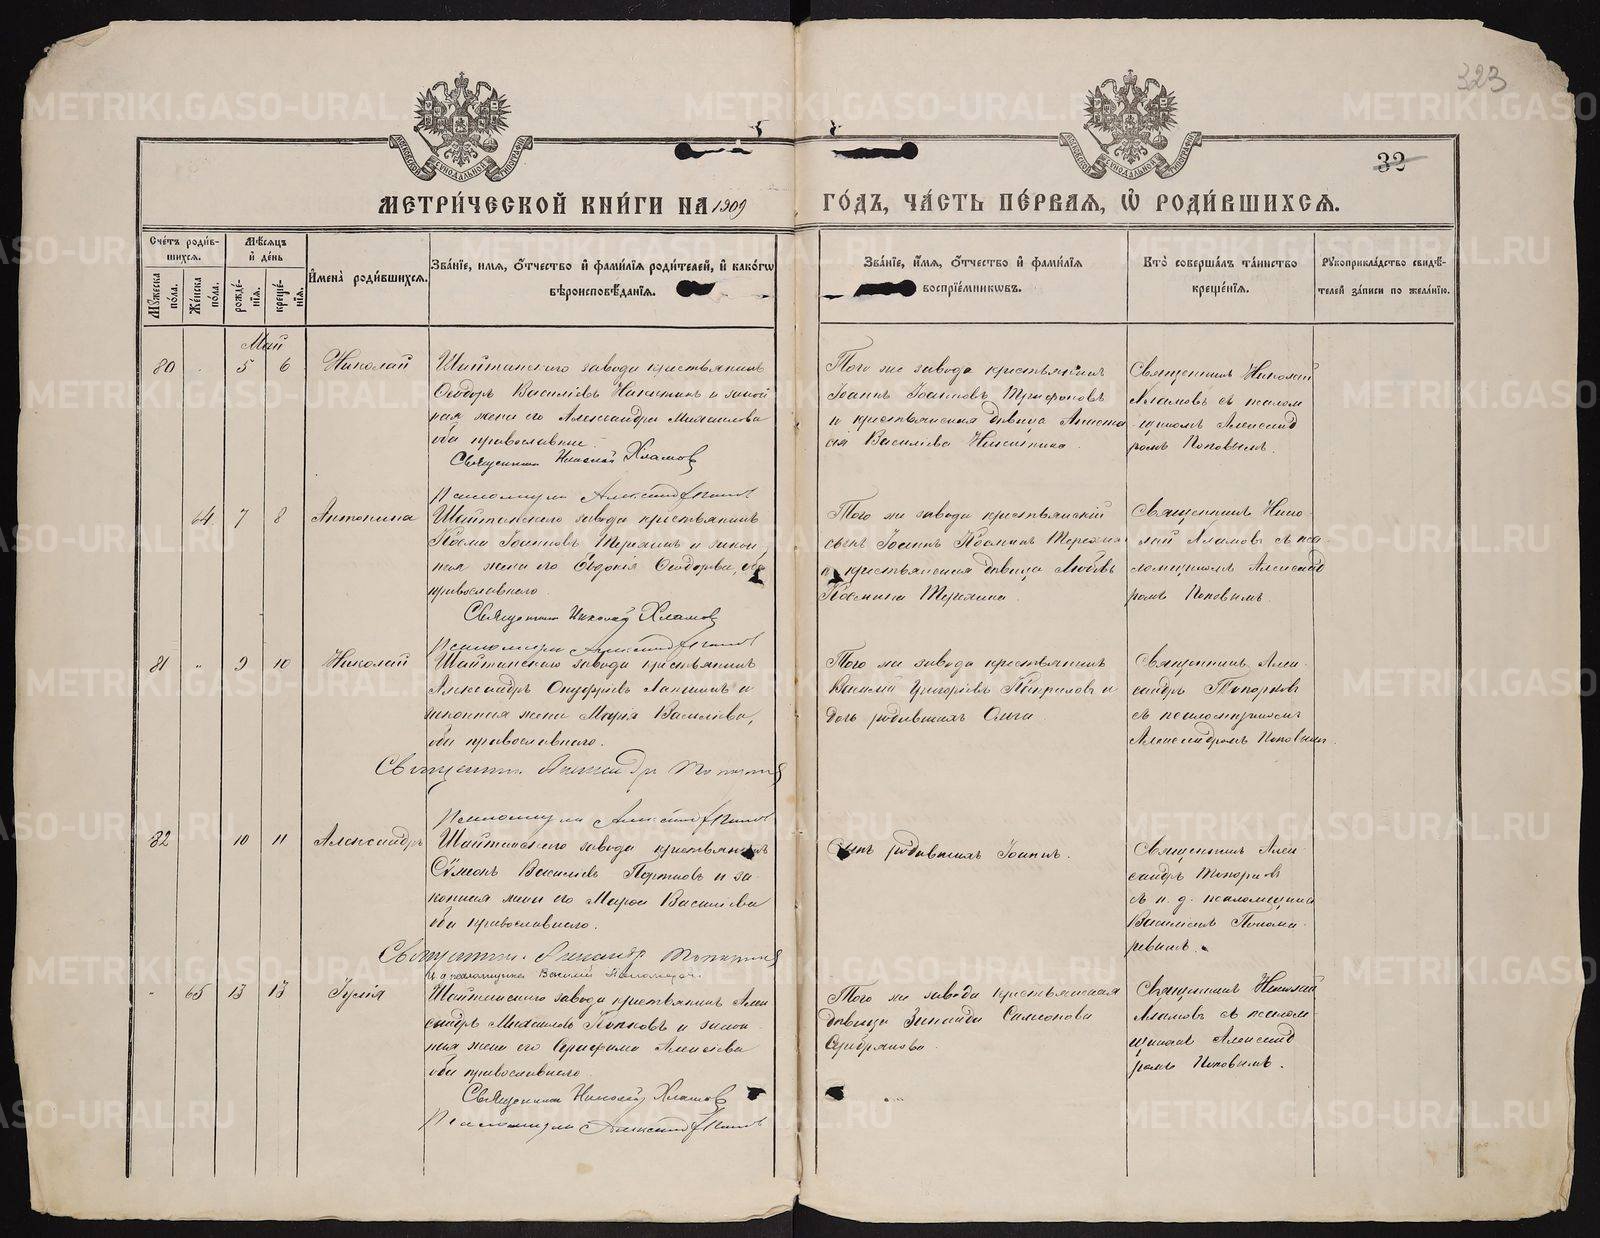 323
32
МЕТРИ́ЧЕСКОЙ КНИ́ГИ НА 1909 ГО́ДЪ, ЧА́СТЬ ПЕ́РВАЯ, Ѡ РОДИ́ВШИХСЯ.
Сче́тъ роди́в-
шихся.
Мꙋ́жеска по́ла.
Же́нска по́ла.
Мѣ́сяцъ и де́нь
рожде́-
нїя.
креще́-
нїя.
Имена̀ роди́вшихся.
Зва́нїе, имя, о́тчество и фами́лїя роди́телей, и како́гѡ
вѣроисповѣ́данїя.
Зва́нїе, и́мя, о́тчество и фами́лїя
воспрїе́мникѡвъ.
Кто̀ соверша́лъ та́инство
креще́нїя.
Рꙋкоприкла́дство свидѣ́-
телей за́писи по жела́нїю.
Май
80
5
6
Николай
Шайтанского завода крестьянинъ
Ѳеодоръ Василіевъ Никитинъ и закон
ная жена его Александра Михаилова
оба православные.
Священникъ Николай Хламов
Псаломщикъ Александр Попов
Того же завода крестьянинъ
Іоаннъ Іоанновъ Трифоновъ
и крестьянская дѣвица Анаста
сія Василіева Никитина
Священникъ Николай
Хламовъ съ псалом
щикомъ Александ
ромъ Поповымъ.
64
7
8
Антонина
Шайтанского завода крестьянинъ
Косма Іоанновъ Терехинъ и закон
ная жена его Евдокія Ѳеодорова, оба
православнаго.
Священникъ Николай Хламов
Псаломщикъ Александр Попов
Того же завода крестьянскій
сынъ Іоаннъ Косминъ Терехинъ
и крестьянская дѣвица Любовь
Космина Терехина.
Священникъ Нико-
лай Хламовъ съ пса
ломщикомъ Александ
ромъ Поповымъ.
81
"
9
10
Николай
Шайтанского завода крестьянинъ
Александръ Онуфріевъ и
законная жена Марія Василіева,
оба православнаго.
Священникъ Александръ Топорков
Псаломщикъ Александр Попов
Того же завода крестьянинъ
Василій Григоріевъ и
дочь родившихъ Ольга.
Священникъ Алек-
сандръ Топорковъ
съ псаломщикомъ
Александромъ Поповымъ.
82
10
11
Александръ
Шайтанского завода крестьянинъ
Сѵмеонъ Василіевъ Портновъ и за-
конная жена его Марѳа Василіева
оба православнаго.
Священникъ Александръ Топорков
И. д. псаломщика Василій Пономарев.
Сынъ родившихъ Іоаннъ.
Священникъ Алек-
сандръ Топорковъ
съ и. д. псаломщика
Василіемъ Понома-
ревымъ.
-
65
13
13
Гуліа
Шайтанского завода крестьянинъ Алек
сандръ Михаиловъ Попковъ и закон-
ная жена его Серафима Алексіева
оба православнаго.
Священникъ Николай Хламов
Псаломщикъ Александр Попов
Того же завода крестьянская
дѣвица Зинаида Симеонова
Серебрякова.
Священникъ Николай
Хламовъ съ псалом-
щикомъ Александ
ромъ Поповымъ.
METRIKI.GASO-URAL.RU